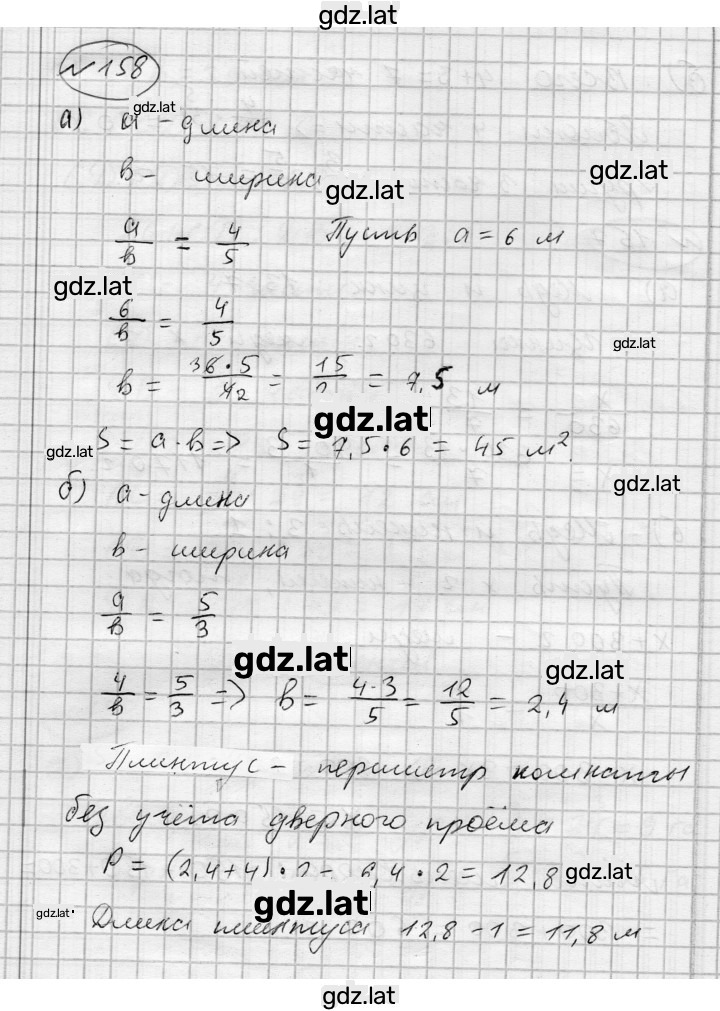 gdz.lat
№158
gdz.lat
а) а - длина
в - ширина
gdz.lat gdz.lat
а/в = 4/5 Пусть а = 6 м
gdz.lat
6/в = 4/5
gdz.lat
в = 36·5/42 = 15/2 = 7,5 м
gdz.lat
gdz.lat S = а·в => S = 7,5·6 = 45 м².
gdz.lat
б) а - длина
в - ширина
а/в = 5/3
gdz.lat gdz.lat
4/в = 5/3 => в = 4·3/5 = 12/5 = 2,4 м
Плинтус - периметр комнаты
без учёта дверного проёма
Р = (2,4+4)·2 = 6,4·2 = 12,8 gdz.lat
gdz.lat gdz.lat
Длина плинтуса 12,8 - 1 = 11,8 м
gdz.lat